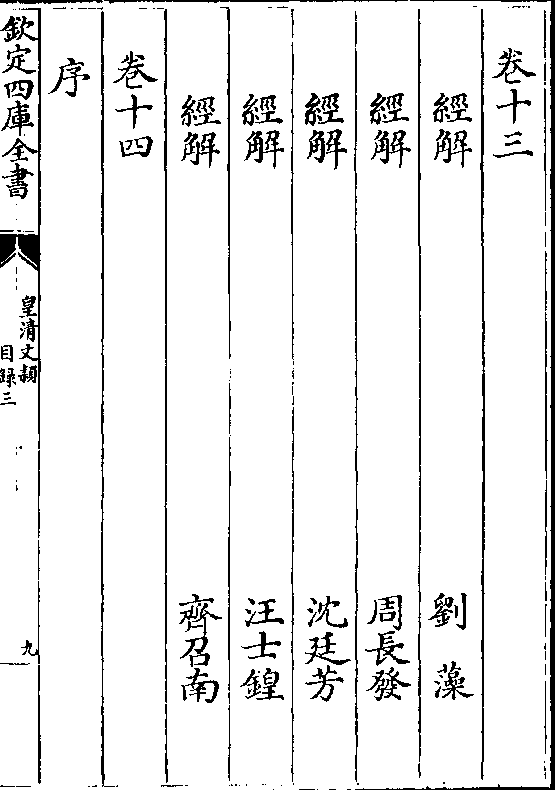 卷十三
經解 劉藻
經解 周長發
經解 沈廷芳
經解 汪士鍠
經解 齊召南
卷十四
序
欽定四庫全書
皇清文頴
目録三
九